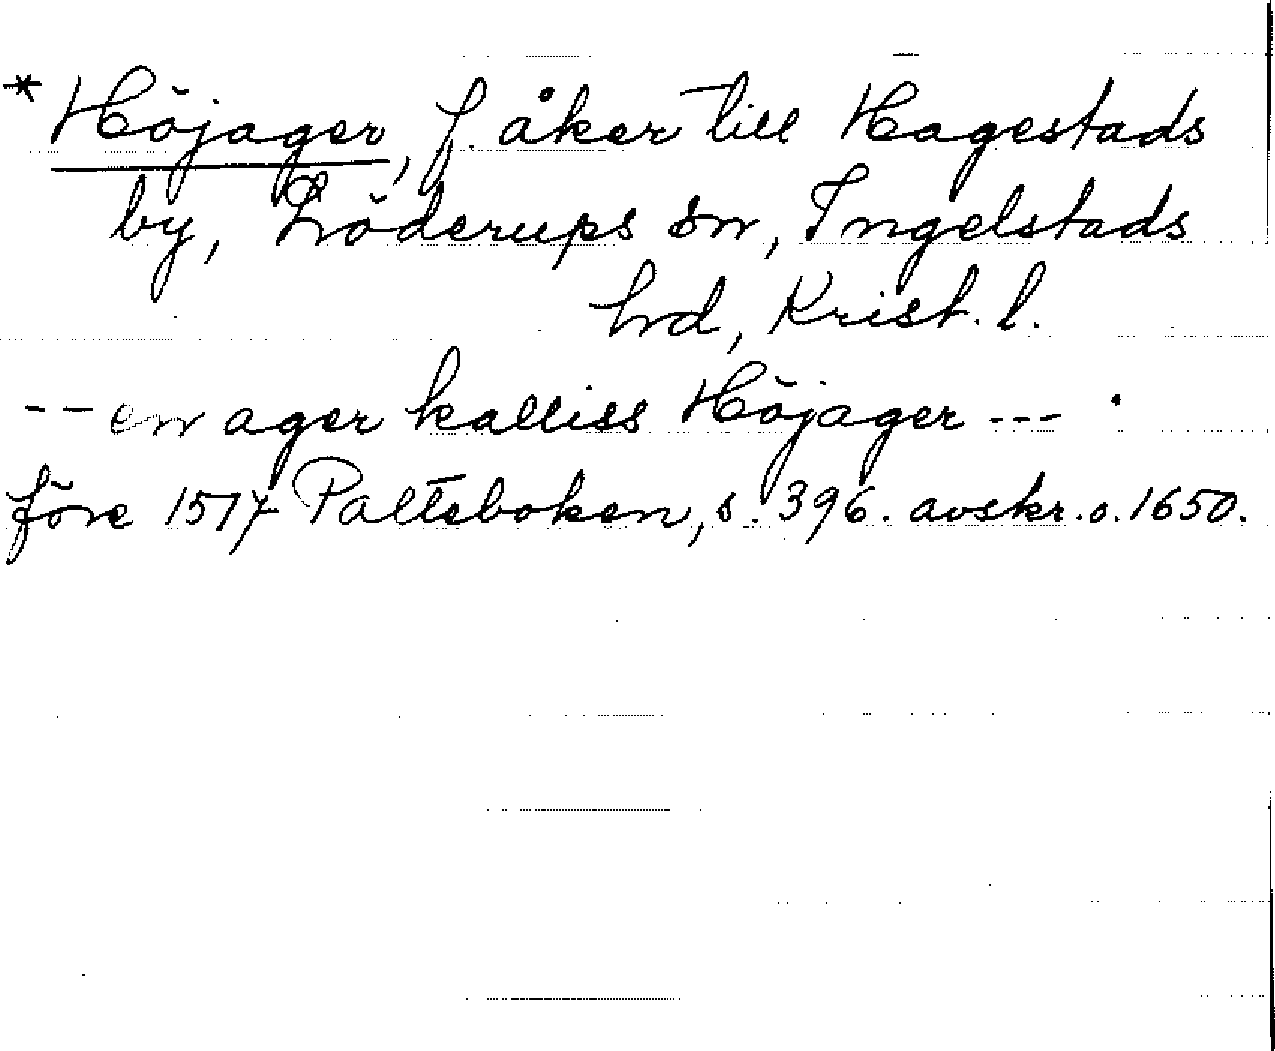 * Höjager, f. åker till Hagestads
by, Löderups sn, Ingelstads
hrd, Krist. l.
-- en ager kalliss Höjager ---
före 1517 Palteboken, s. 396. avskr. o. 1650.